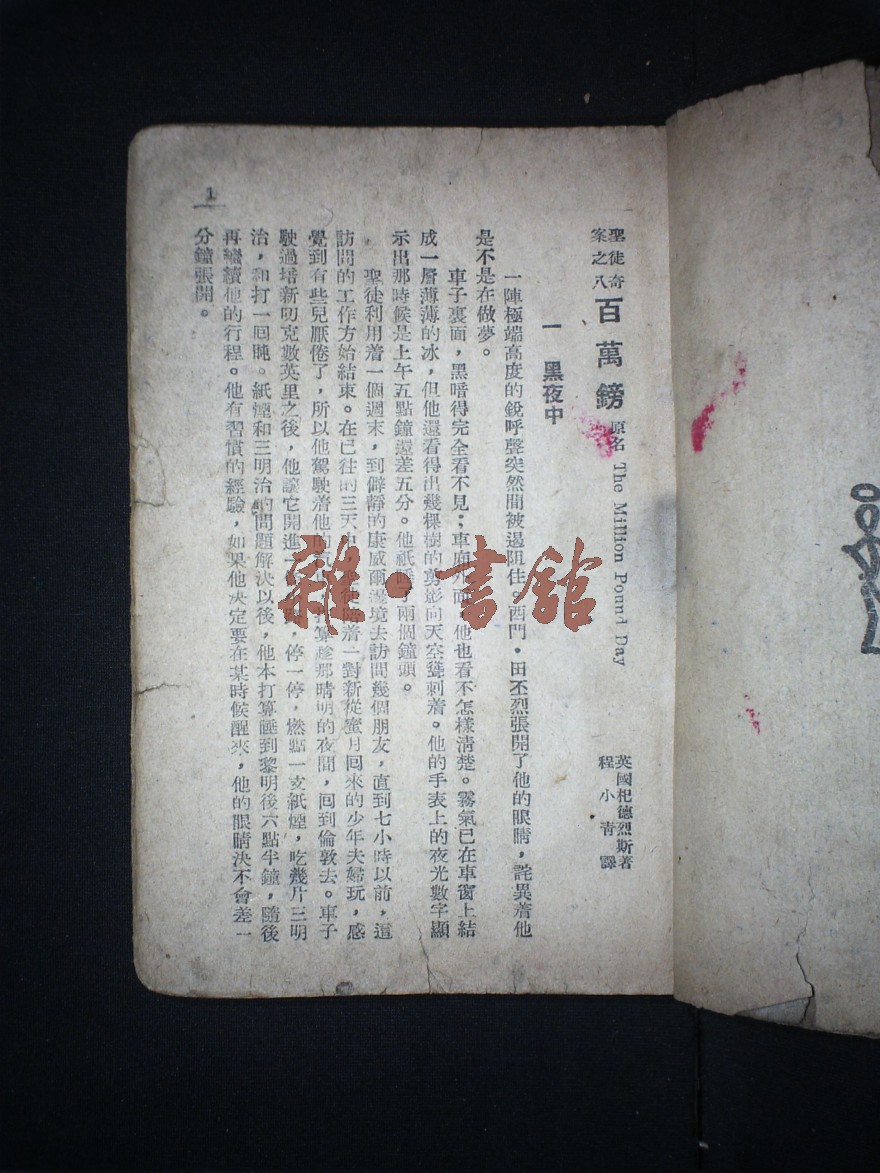 聖徒奇
案之八
百萬鎊 原名 The Million Pound Day
英國杞德烈斯著
程小青譯
一 黑夜中
一陣極端高度的銳呼聲突然間被遏阻住。西門·田丕烈張開了他的眼睛,詫異着他
是不是在做夢。
車子裏面,黑暗得完全看不見;車廂外面,他也看不怎樣清楚。霧氣已在車窗上結
成一層薄薄的冰,但他還看得出幾棵樹的黑影向天空聳刺着。他的手表上的夜光數字顯
示出那時候是上午五點鐘還差五分。他祇睡 兩個鐘頭。
聖徒利用着一個週末,到僻靜的康威爾邊境去訪問幾個朋友,直到七小時以前,這
訪問的工作方始結束。在已往的三天 着一對新從蜜月回來的少年夫婦玩,感
覺到有些兒厭倦了,所以他駕駛着他的 算趁那晴明的夜間,回到倫敦去。車子
駛過培新叨克數英里之後,他讓它開進一 ,停一停,燃點一支紙煙,吃幾片三明
治,和打一回盹。紙煙和三明治的問題解決以後,他本打算睡到黎明後六點半鐘,隨後
再繼續他的行程。他有習慣的經驗,如果他决定要在某時候醒來,他的眼睛決不會差一
分鐘張開。
1
雜·書館